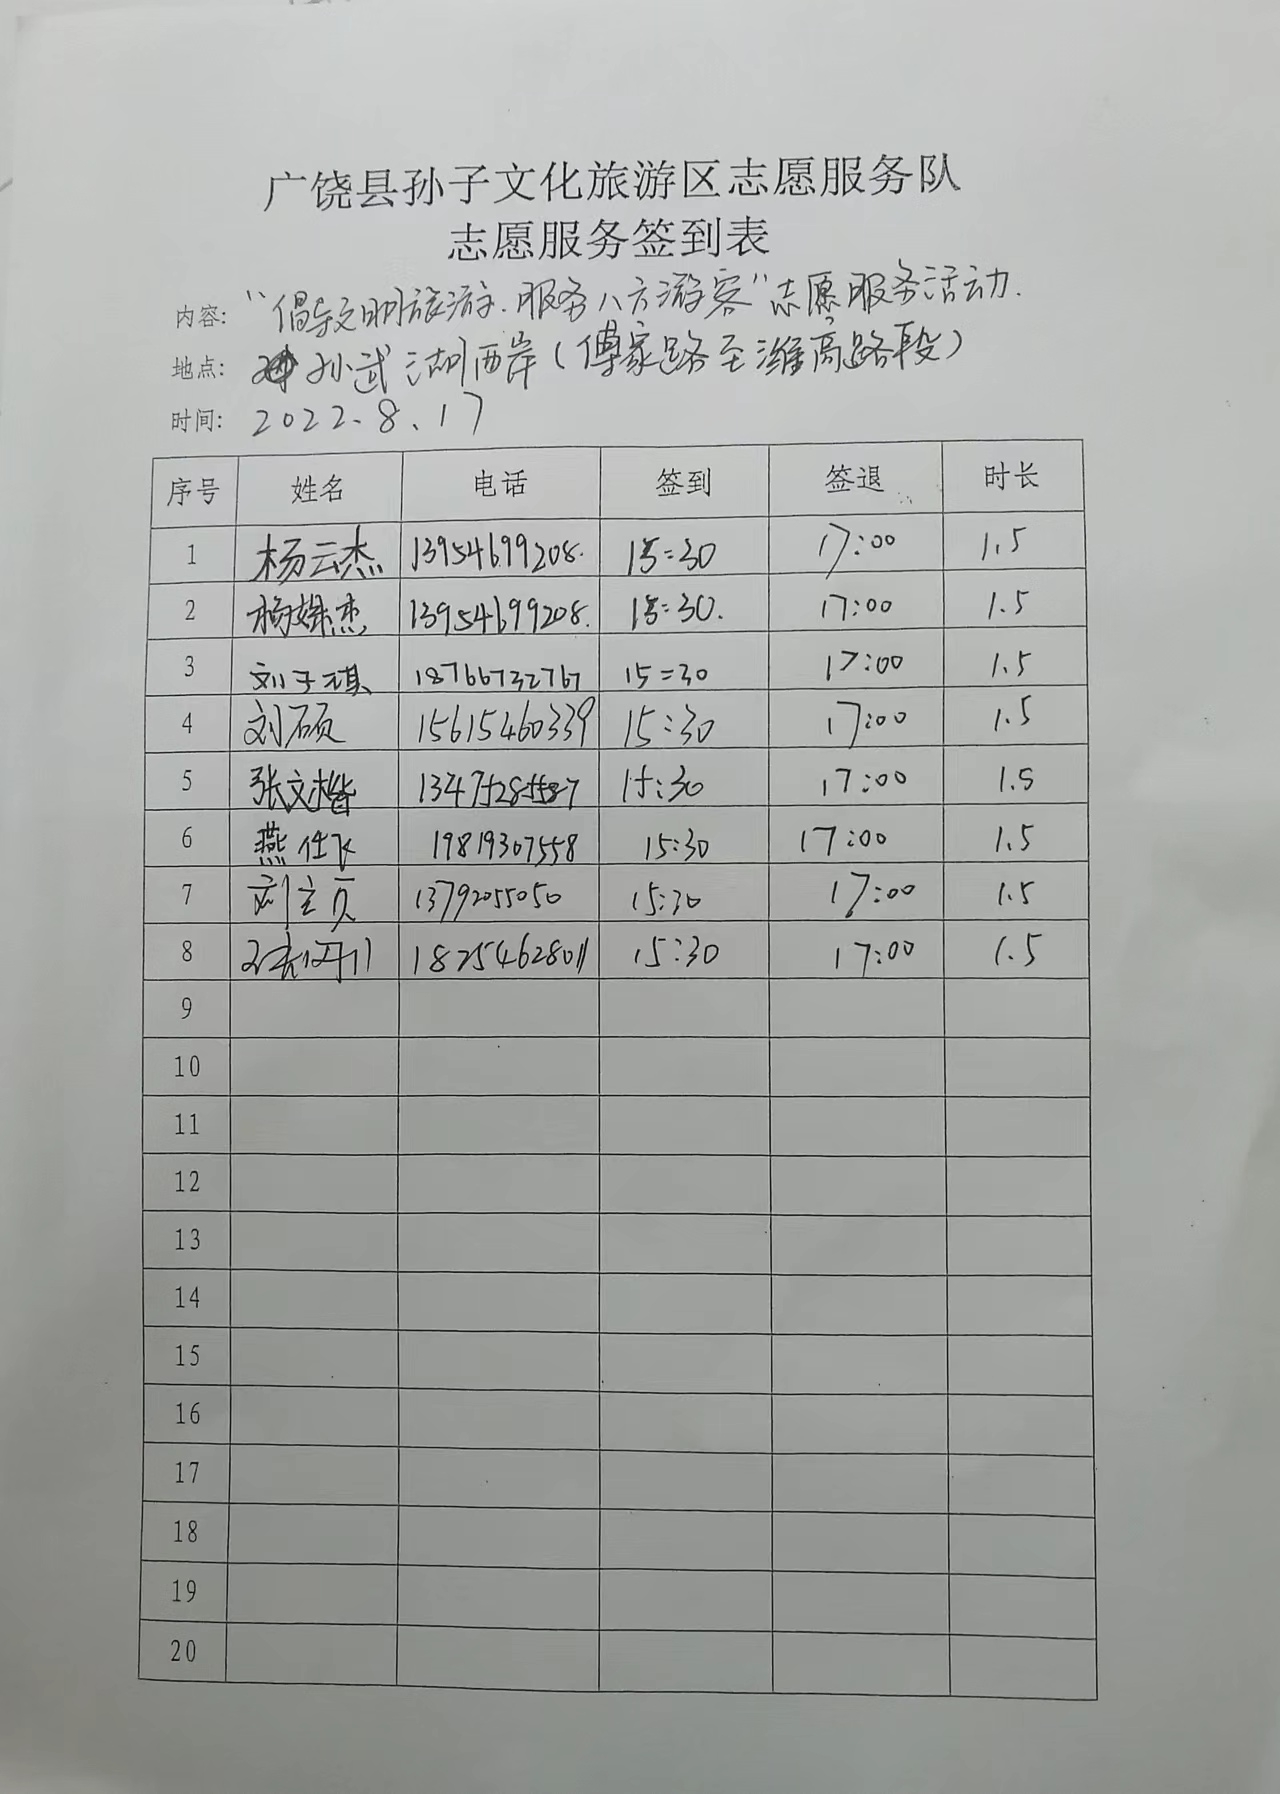 广饶县孙子文化旅游区志愿服务队
志愿服务签到表
内容: “倡导文明旅游.服务八方游客”志愿服务活动.
地点: 孙武湖西岸(傅家路至潍高路段)
时间: 2022.8.17
序号 姓名 电话 签到 签退 时长
1 杨云杰 13954699208. 15:30 17:00 1.5
2 杨姝杰 13954699208. 15:30. 17:00 1.5
3 刘子琪 18766732767 15:30 17:00 1.5
4 刘硕 15615460339 15:30 17:00 1.5
5 张文楷 15:30 17:00 1.5
6 燕仕飞 19819307558 15:30 17:00 1.5
7 13792055050 15:30 17:00 1.5
8 18254628011 15:30 17:00 1.5
9
10
11
12
13
14
15
16
17
18
19
20